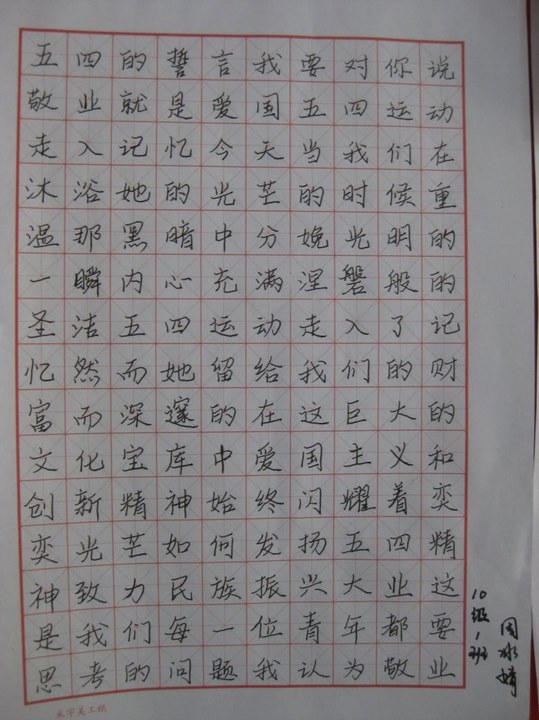 五四的誓言我要对你说
敬业就是爱国五四运动
走入记忆今天当我们在
沐浴她的光芒的时候重
温那黑暗中分娩光明的
一瞬内心充满涅磐般的
圣洁五四运动走入了记
忆然而她留给我们的财
富而深邃的在这巨大的
文化宝库中爱国主义和
创新精神始终闪耀着奕
奕光芒如何发扬五四精
神致力民族振兴大业这
是我们每一位青年都要
思考的问题我认为敬业
10级1班
周冰婷
米字美工纸